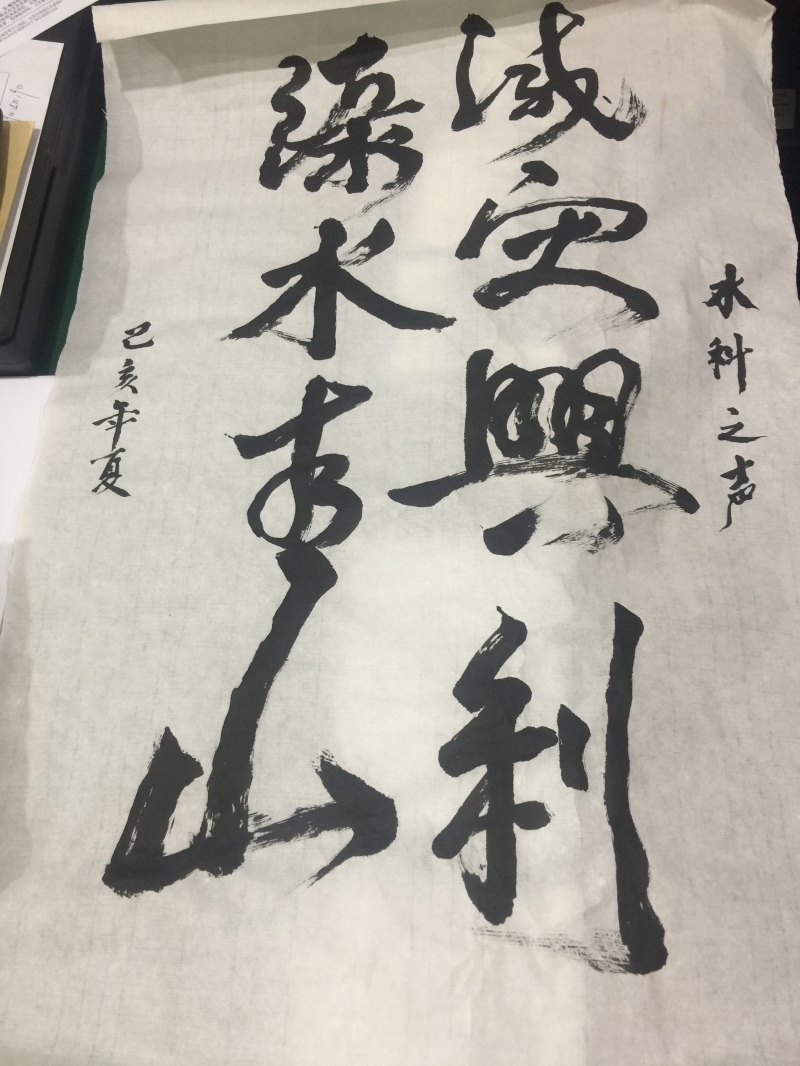 水科之声
减灾興利
绿水青山
己亥年夏